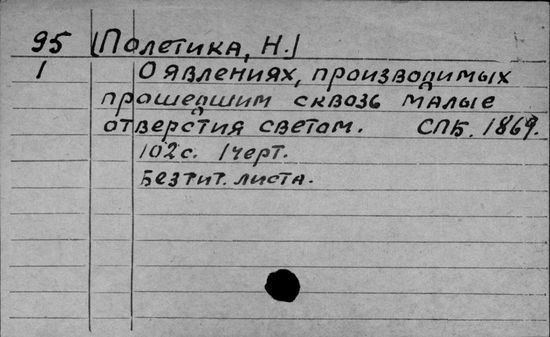 95 [Полетика, Н.]
1 О явлениях, производимых
прошедшим сквозь малые
отверстия светом. СПБ. 1869.
102с. 1черт.
Без тит. листа.